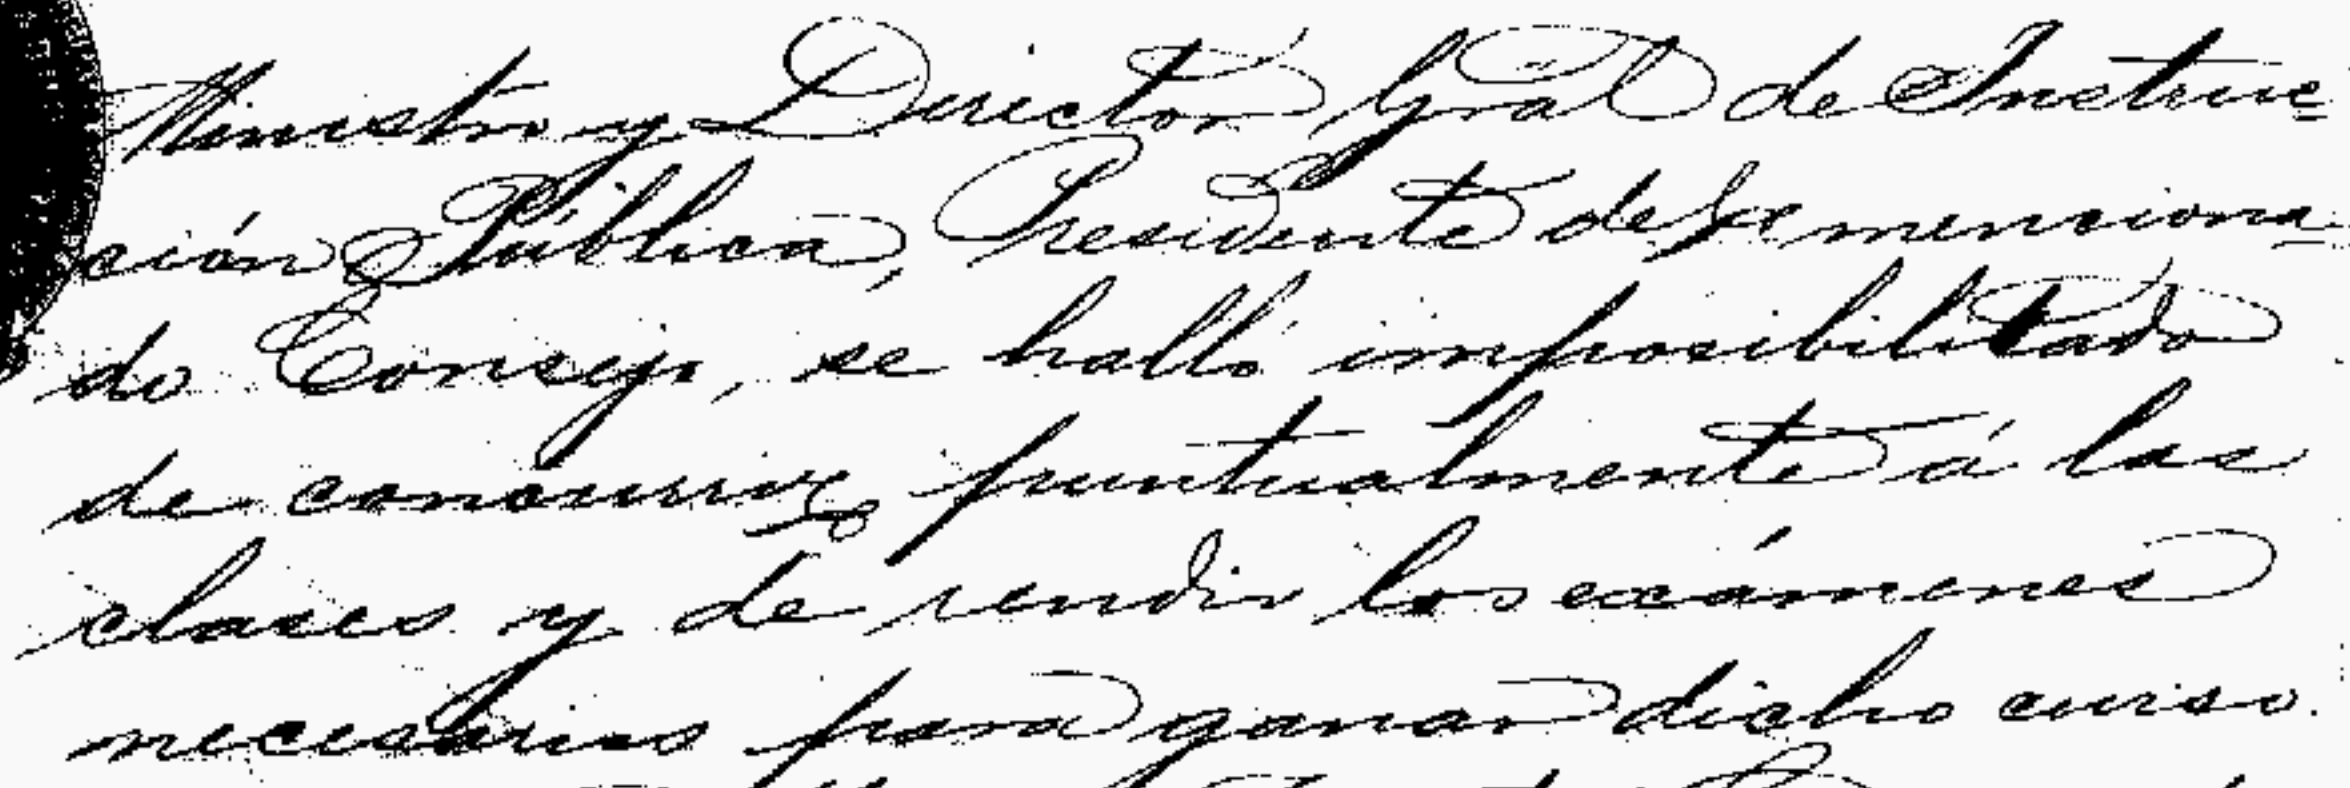 Ministro y Director Gral de Instruc-
ción Pública, Presidente del menciona-
do Consejo, se halló imposibilitado
de concurrir puntualmente á las
clases y de rendir los exámenes
necesarios para ganar dicho curso.